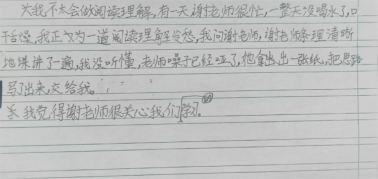 我不太会做阅读理解,有一天谢老师很忙,一整天没喝水了,口
干舌燥,我正为一道阅读理解发愁,我问谢老师,谢老师条理清晰
地讲述了一遍,我没听懂,老师嗓子已经哑了,他拿出出一张纸,把思路
写了出来,交给我。
我觉得谢老师很关心我们学习。